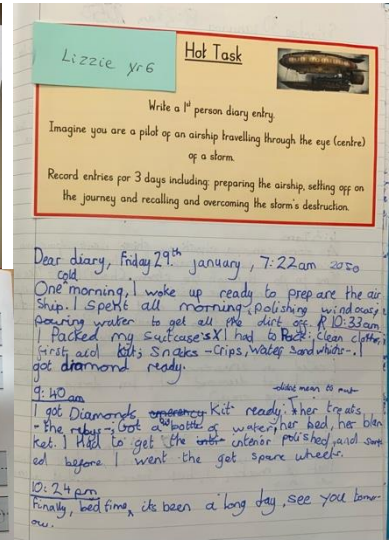 Lizzie yr6
Hot Task
Write a 1st person diary entry.
Imagine you are a pilot of an airship travelling through the eye (centre)
of a storm.
Record entries for 3 days including: preparing the airship, setting off on
the journey and recalling and overcoming the storm's destruction.
Dear diary, Friday 29th january, 7:22am 2050
cold
One morning, I woke up ready to prepare the air
ship. I spent all morning, polishing windows,
pouring water to get all the dirt off. 10:33am
I Packed my suitcases I had to Pack: clean clothes,
first aid kit, Snaks - Crips, water, sandwhits-. I
got diamond ready.
9:40am
didnt mean to put
I got Diamonds Kit ready: her treats
- the Got a bottle of water, her bed, her blan
ket. I Had to get the interior polished, and
ed before I went the get spare wheels.
10:24pm
Finally, bed time, its been a long day, see you tomor-
ow.